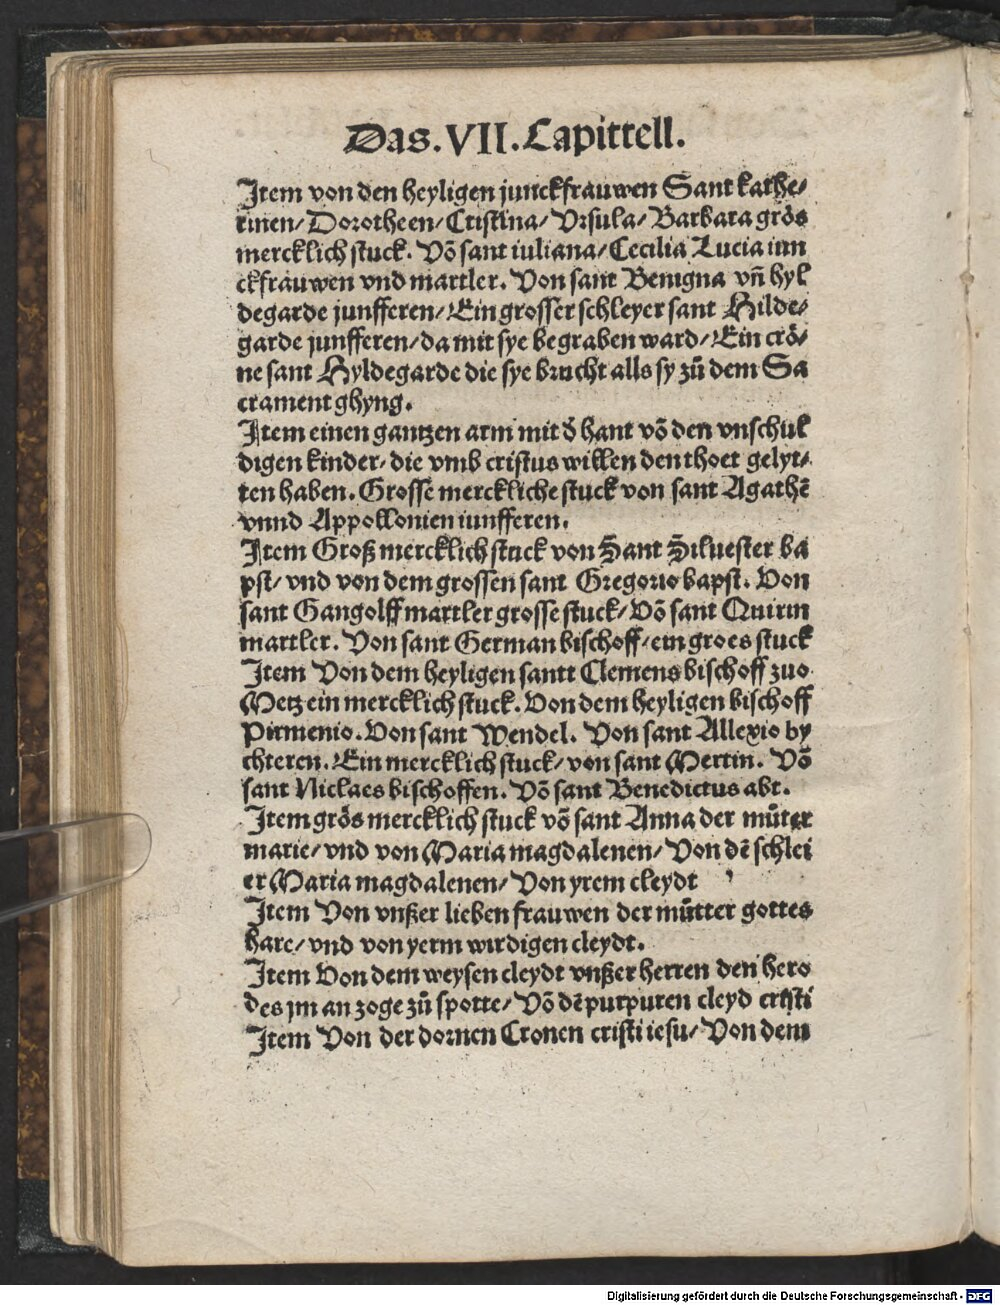 Das.VII.Capittell.
Jtem von den heyligen junckfrauwen Sant kathe⸗
rinen/ Dorotheen/ Cristina/ Vrsula/ Barbara grös
mercklich stuck. Võ sant iuliana/ Cecilia Lucia iun
ckfrauwen vnd martler. Von sant Benigna vn̄ hyl
degarde junfferen/ Ein grosser schleyer sant Hilde⸗
garde junfferen/ da mit sye begraben ward/ Ein crö⸗
ne sant Hyldegarde die sye brucht alls sy zů dem Sa
crament ghyng.
Jtem einen gantzen arm mit d̄ hant võ den vnschul
digen kinder/ die vmb cristus willen den thoet gelyt⸗
ten haben. Grosse merckliche stuck von sant Agathē
vnnd Appollonien iunfferen.
Jtem Groß mercklich stuck von Sant Siluester ba
pst/ vnd von dem grossen sant Gregorio bapst. Von
sant Gangolff martler grosse stuck/ Võ sant Quirin
martler. Von sant German bischoff/ ein groes stuck
Jtem Von dem heyligen santt Clemens bischoff zuo
Metz ein mercklich stuck. Von dem heyligen bischoff
Pirmenio. Von sant Wendel. Von sant Allexio by
chteren. Ein mercklich stuck/ von sant Mertin. Võ
sant Niclaes bischoffen. Võ sant Benedictus abt.
Jtem grös mercklich stuck võ sant Anna der můter
marie/ vnd von Maria magdalenen/ Von dē schlei
er Maria magdalenen/ Von yrem cleydt
Jtem Von vnßer lieben frauwen der můtter gottes
hare/ vnd von yerm wirdigen cleydt.
Jtem Von dem weysen cleydt vnßer herren den hero
des jm an zoge zů spotte/ Võ dē purpuren cleyd cristi
Jtem Von der dornen Cronen cristi iesu/ Von dem
Digitalisierung gefördert durch die Deutsche Forschungsgemeinschaft - DFG